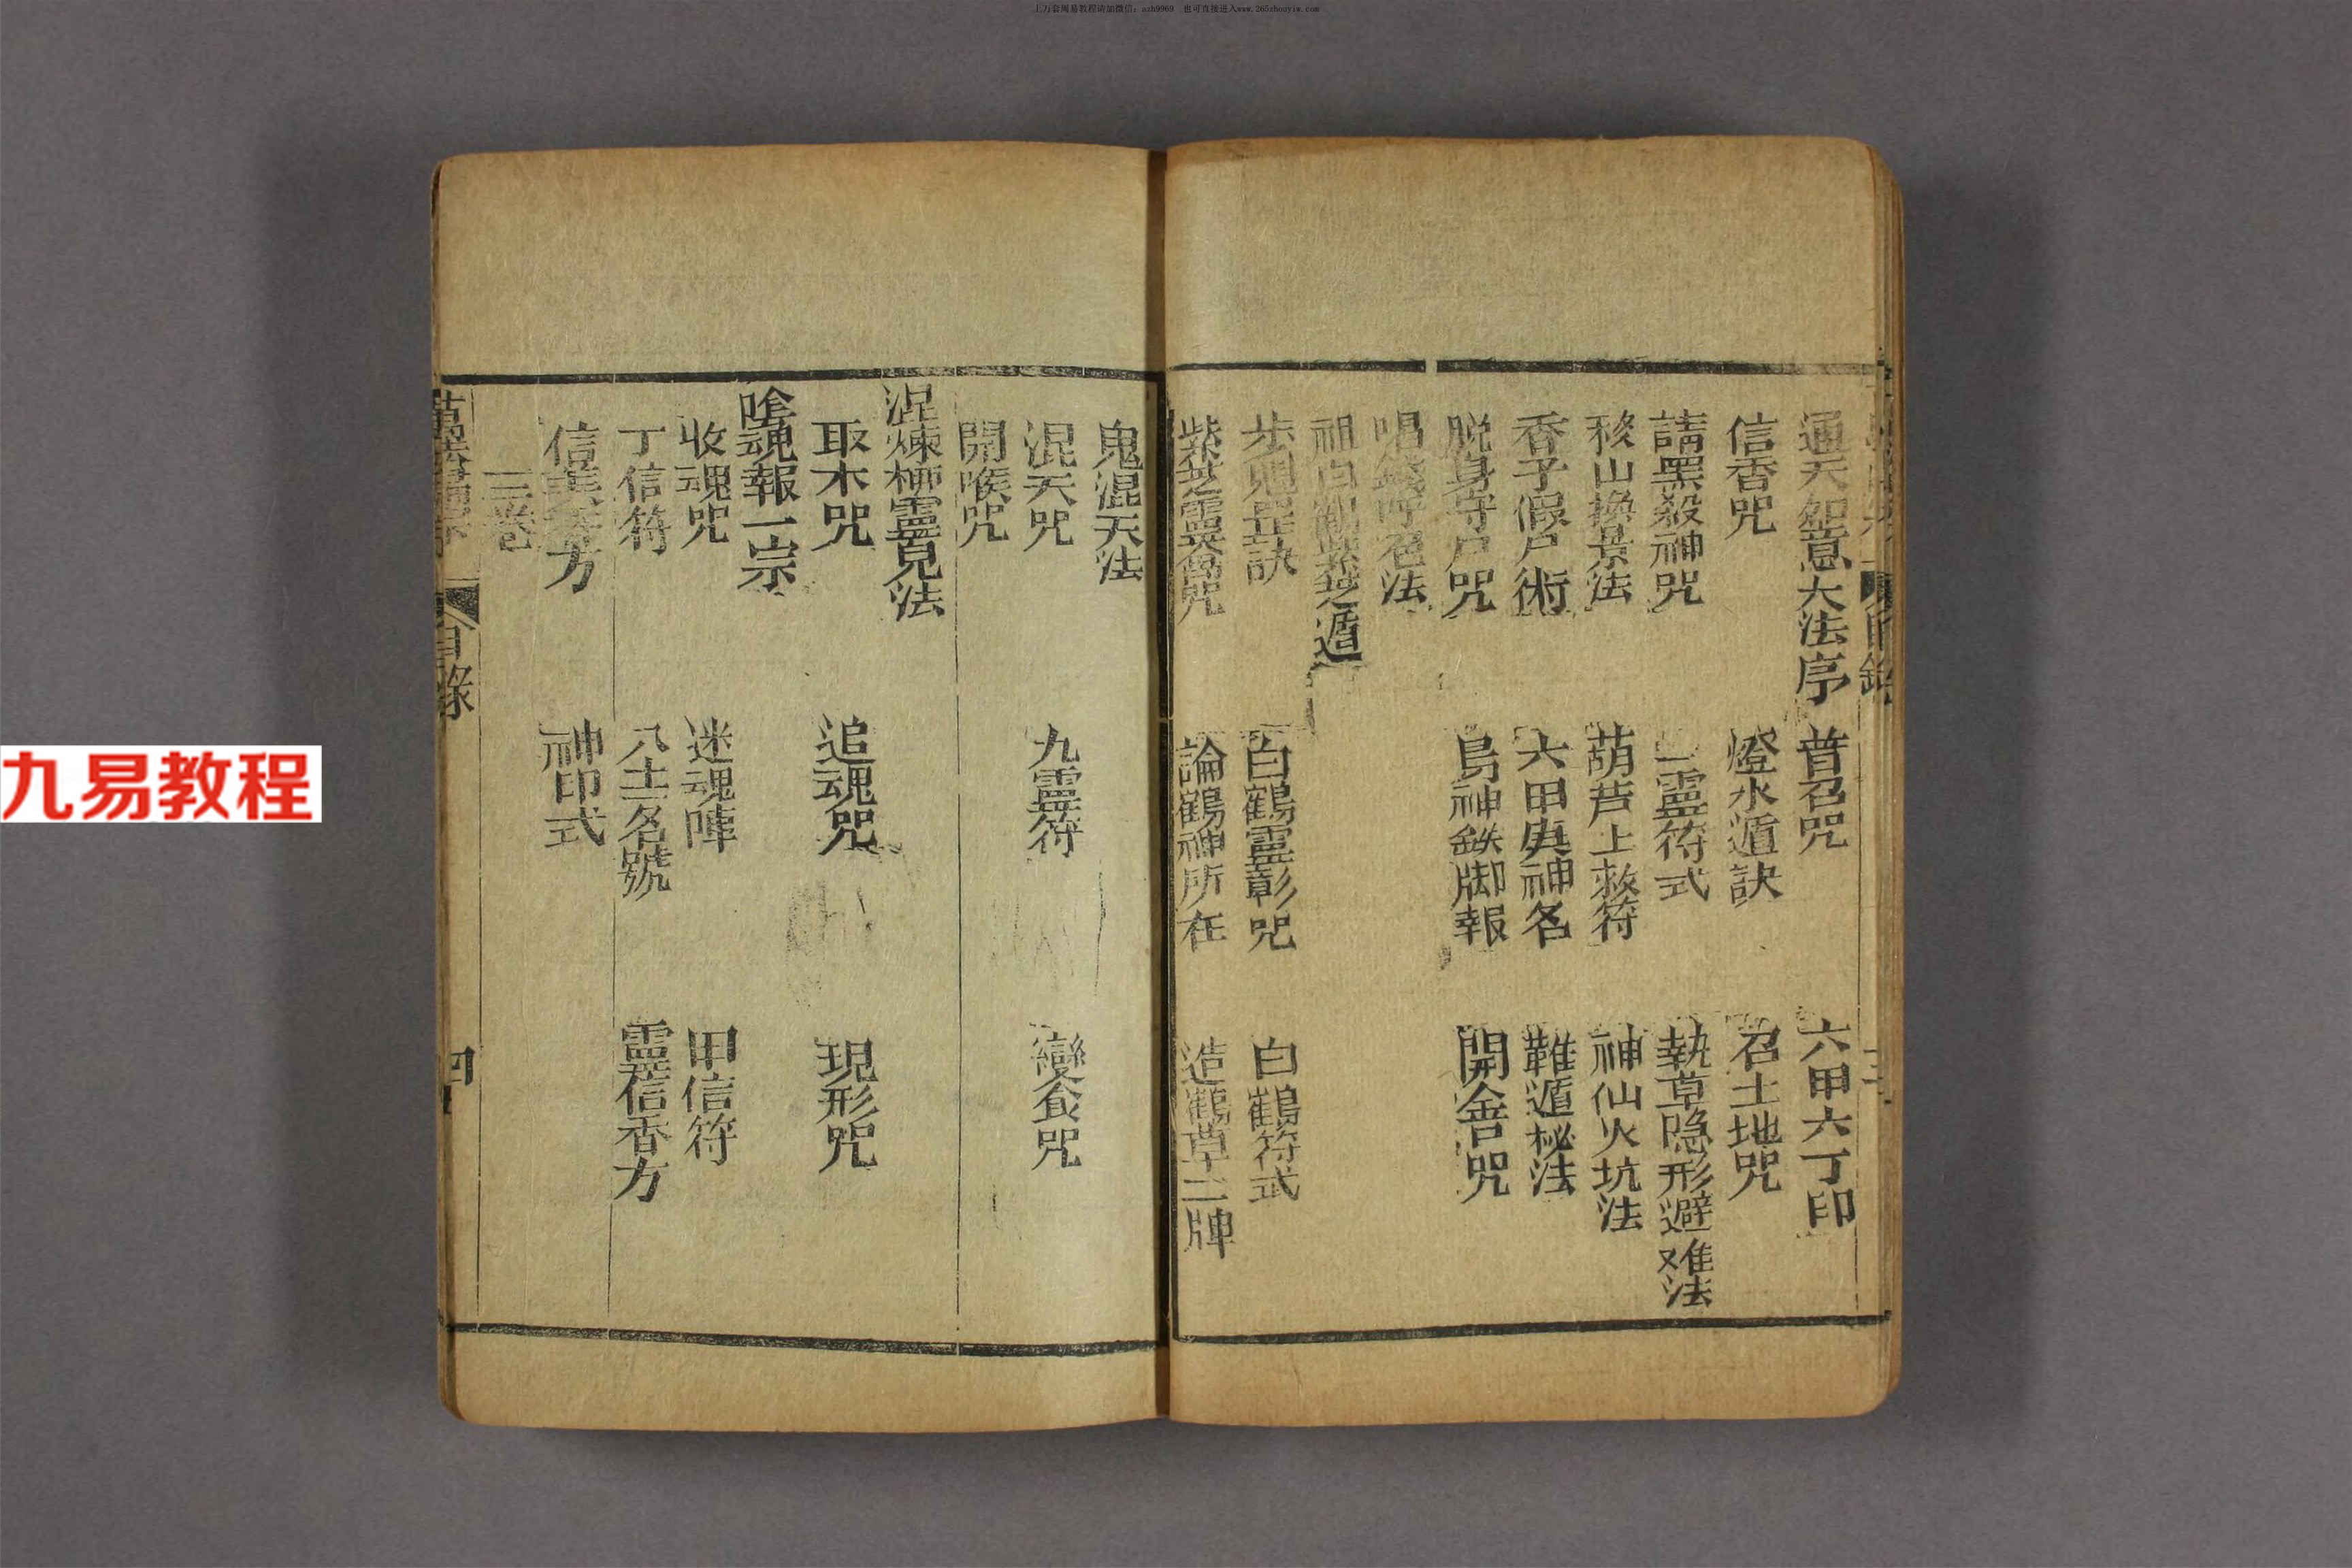 上万套周易教程请加微信：azh0068 也可直接进入www.265zhouyiw.com
九易教程
通天恕意大法序 普召咒 六甲六丁印
信香咒 燈水遁訣 召土地咒
請黑殺神咒 靈符式 執草隐形避难法
移山換景法 葫芦上救符 神仙火坑法
香子假尸術 六甲神名 遁秘法
脱身守尸咒 神鉄脚報 開舍咒
唱錢呼召法
祖白鶴紫芝遁
步魁罡訣 白鶴靈彰咒 白鶴符式
紫芝靈咒 論鶴神所在 造鶴草二牌
鬼混天法
混天咒 九靈符 變食咒
開喉咒
涅煉柳靈見法
取木咒 追魂咒 現形咒
魂報一宗
收魂咒 迷魂陣 甲信符
丁信符 八士名號 靈信香方
信香方 神印式
三卷
目錄 四